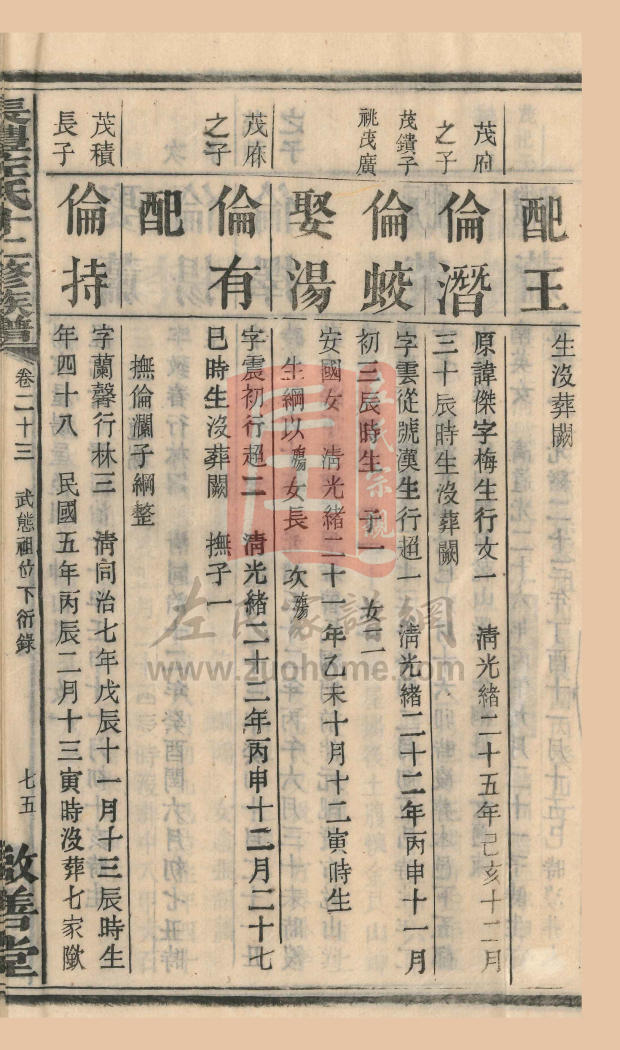 配王
生沒葬闕
茂府
之子
倫潛
原諱傑字梅生行文一 清光緒二十五年己亥十二月
三十辰時生沒葬闕
茂鐀子
祧茂廣
倫蛟
字雲從號漢生行超一 清光緒二十二年丙申十一月
初三辰時生 子一 女二
娶湯
安國女 清光緒二十一年乙未十月十二寅時生
生綱以殤 女長 次殤
茂庥
之子
倫有
字震初行超二 清光緒二十三年丙申十二月二十七
巳時生沒葬闕 撫子一
配
撫倫瀾子綱整
茂積
長子
倫持
字蘭馨行林三 清同治七年戊辰十一月十三辰時生
年四十八 民國五年丙辰二月十三寅時沒葬七家歘
長豊左氏十二修族譜
卷二十三 武態祖位下衍錄 七五
敬善堂
左氏宗親
左氏家譜網
www.zuohome.com